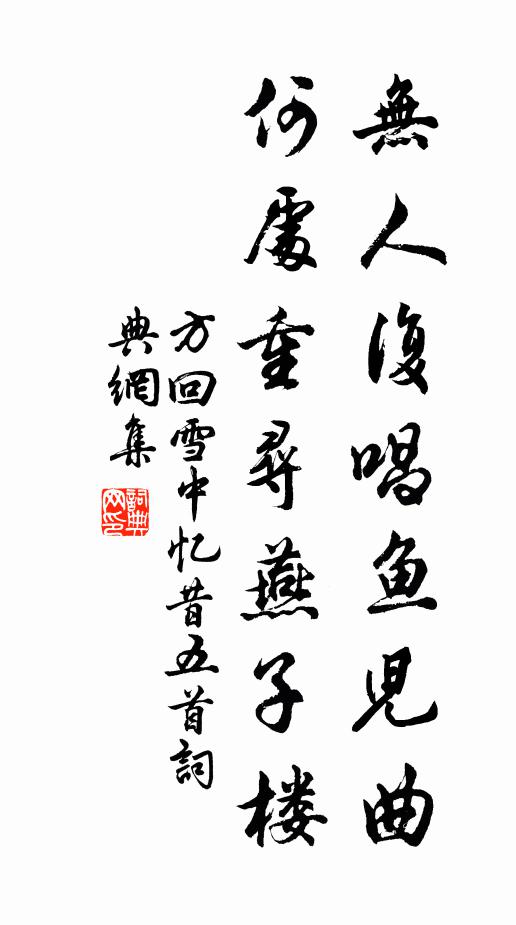 無人復唱鱼児曲
何處重尋燕子楼
方回雪中忆昔五首詞
典網集
詞典网印